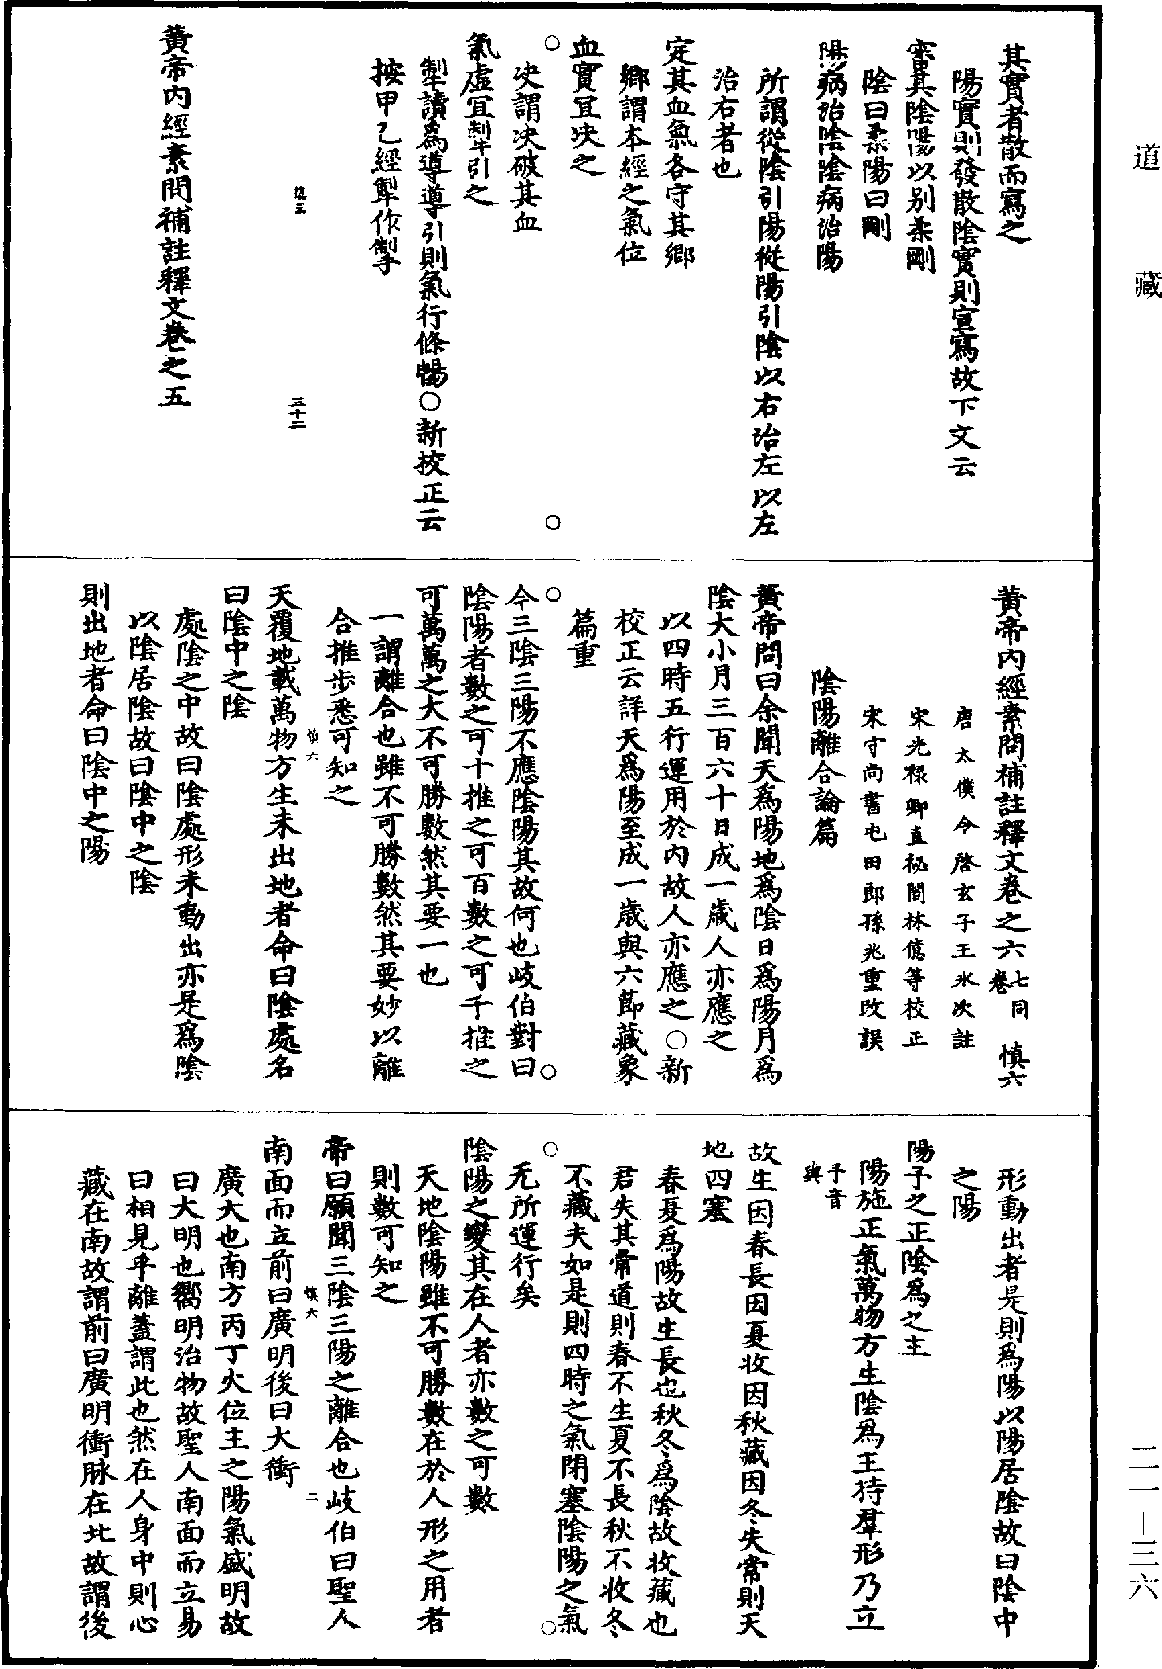 道藏
其實者散而寫之
陽實則發散陰實則宣寫故下文云
審其陰陽以別柔剛
陰曰柔陽曰剛
陽病治陰陰病治陽
所謂從陰引陽從陽引陰以右治左以左
治右者也
定其血氣各守其鄉
鄉謂本經之氣位
血實宜決之
○○
決謂決破其血
氣虛宜掣引之
掣讀為導導引則氣行條暢○新校正云
按甲乙經掣作掣
三十二
黃帝內經素問補註釋文卷之五
黃帝內經素問補註釋文卷之六七同卷 慎六
唐太僕令啓玄子王氷次註
宋光祿卿直祕閣林億等校正
宋守尚書屯田郎孫兆重改誤
陰陽離合論篇
黃帝問曰余聞天為陽地爲陰日爲陽月爲
陰大小月三百六十日成一歲人亦應之
以四時五行運用於內故人亦應之○新
校正云詳天爲陽至成一歲與六節藏象
篇重
○○
今三陰三陽不應陰陽其故何也岐伯對曰
陰陽者數之可十推之可百數之可千推之
可萬萬之大不可勝數然其要一也
一謂離合也雖不可勝數然其要妙以離
合推步悉可知之
慎六
天覆地載萬物方生未出地者命曰陰處名
曰陰中之陰
處陰之中故曰陰處形未動出亦是爲陰
以陰居陰故曰陰中之陰
則出地者命曰陰中之陽
形動出者是則爲陽以陽居陰故曰陰中
之陽
陽予之正陰爲之主
陽施正氣萬物方生陰爲主持羣形乃立
予音與
故生因春長因夏收因秋藏因冬失常則天
地四塞
春夏爲陽故生長也秋冬爲陰故收藏也
君失其常道則春不生夏不長秋不收冬
不藏夫如是則四時之氣閉塞陰陽之氣
○○
无所運行矣
陰陽之變其在人者亦數之可數
天地陰陽雖不可勝數在於人形之用者
則數可知之
帝曰願聞三陰三陽之離合也岐伯曰聖人
慎六 二
南面而立前曰廣明後曰大衝
廣大也南方丙丁火位主之陽氣盛明故
曰大明也嚮明治物故聖人南面而立易
曰相見乎離蓋謂此也然在人身中則心
藏在南故謂前曰廣明衝脉在北故謂後
二一—三六